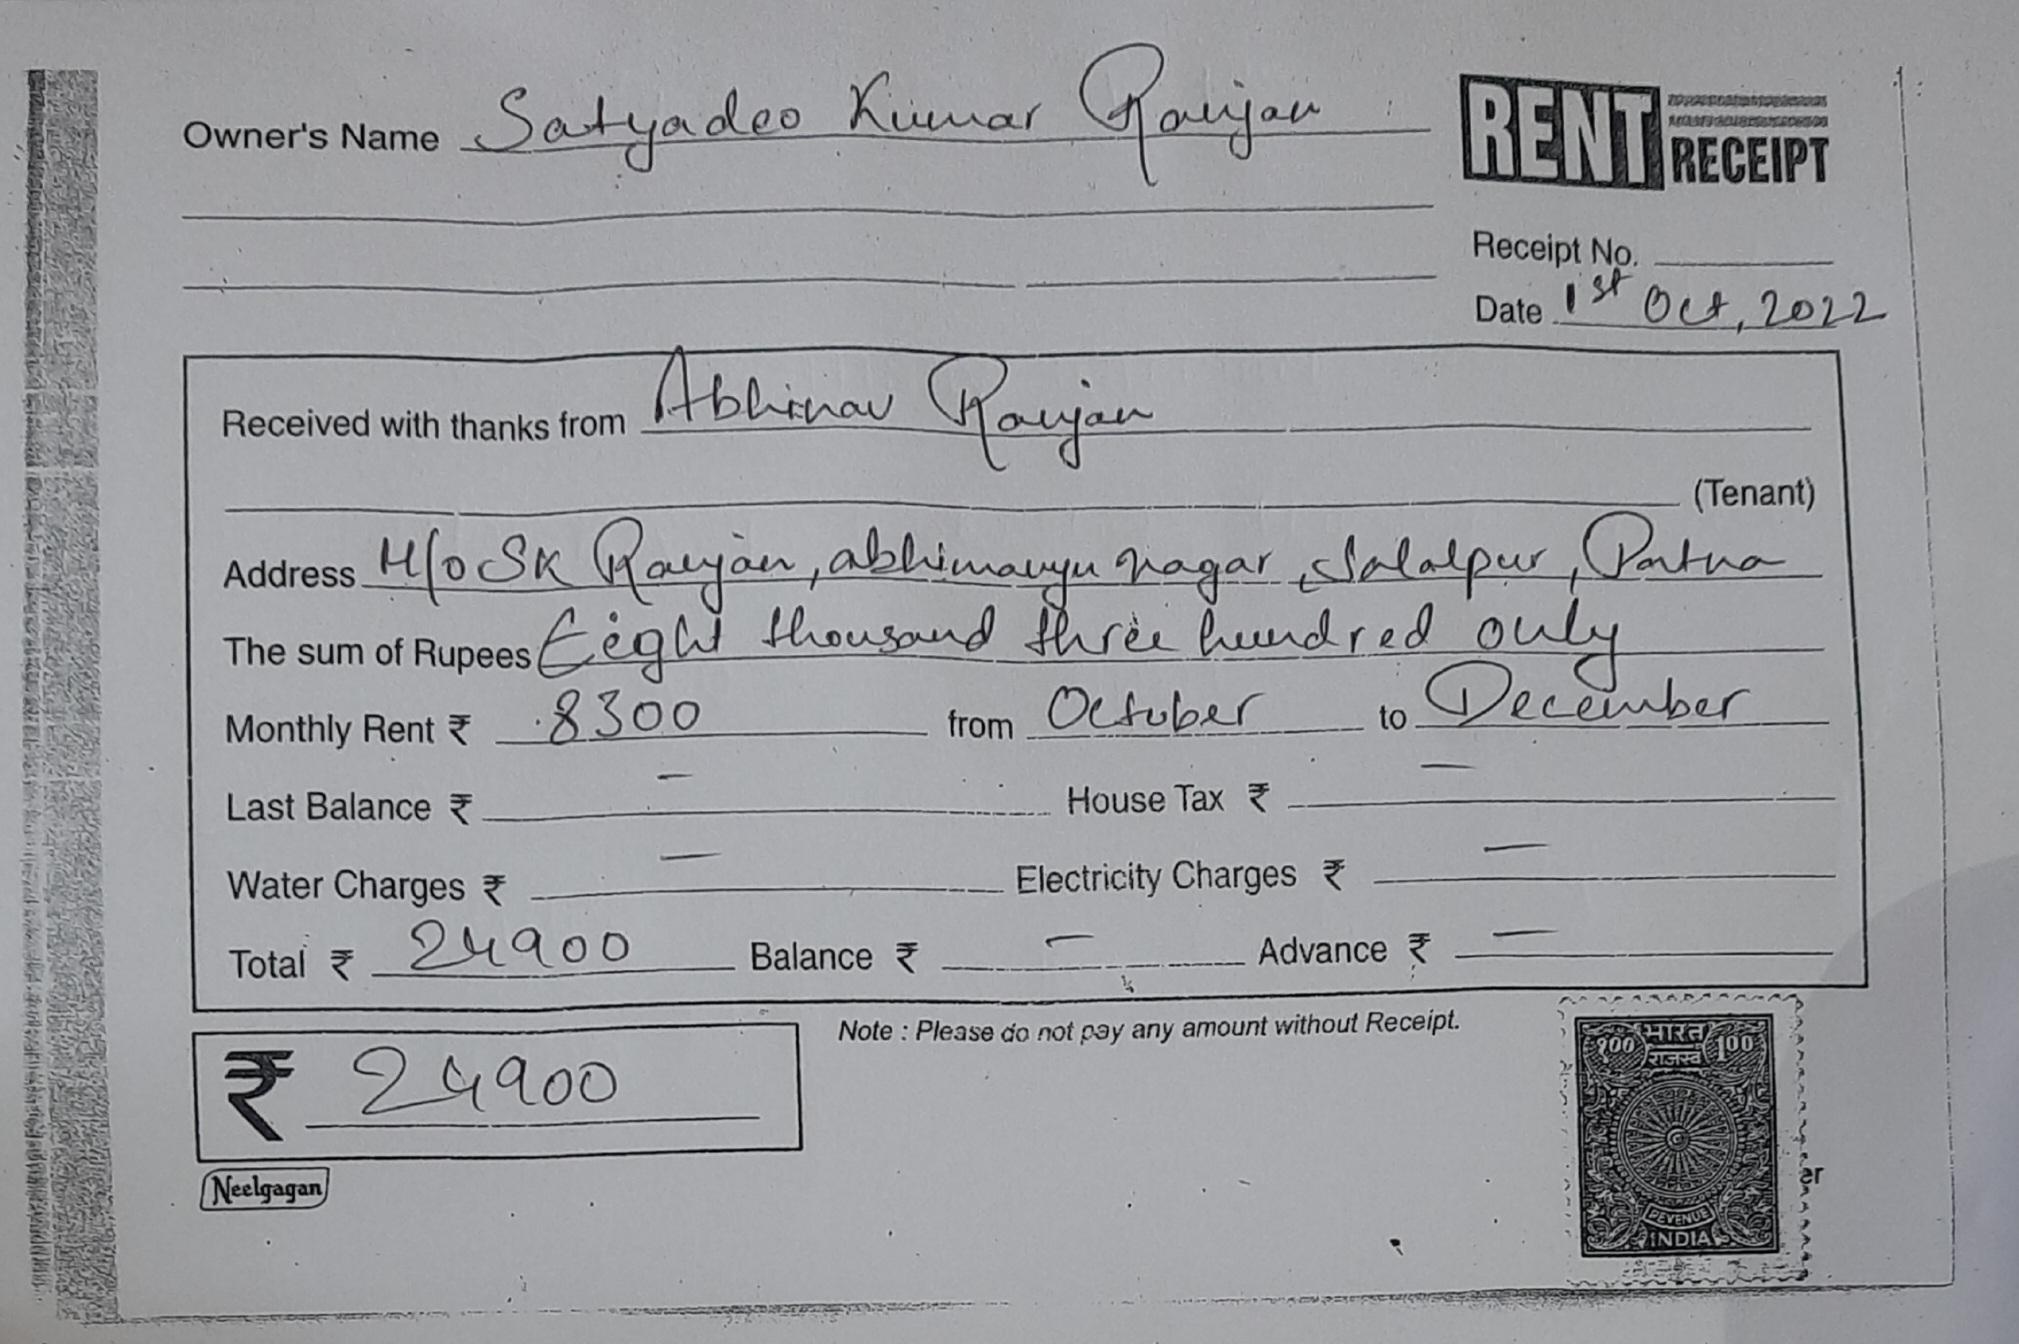 Owner's Name Satyadeo Kumar Ranjan
RENT RECEIPT
Receipt No.
Date 1st Oct, 2022
Received with thanks from Abhinav Ranjan
(Tenant)
Address H/o SK Ranjan, abhimanyu nagar, Jalalpur, Patna
The sum of Rupees Eight thousand three hundred only
Monthly Rent ₹ 8300 from October to December
Last Balance ₹ — House Tax ₹ —
Water Charges ₹ — Electricity Charges ₹ —
Total ₹ 24900 Balance ₹ — Advance ₹ —
Note : Please do not pay any amount without Receipt.
₹ 24900
Neelgagan
भारत
१00 राजस्व 100
REVENUE
INDIA
er